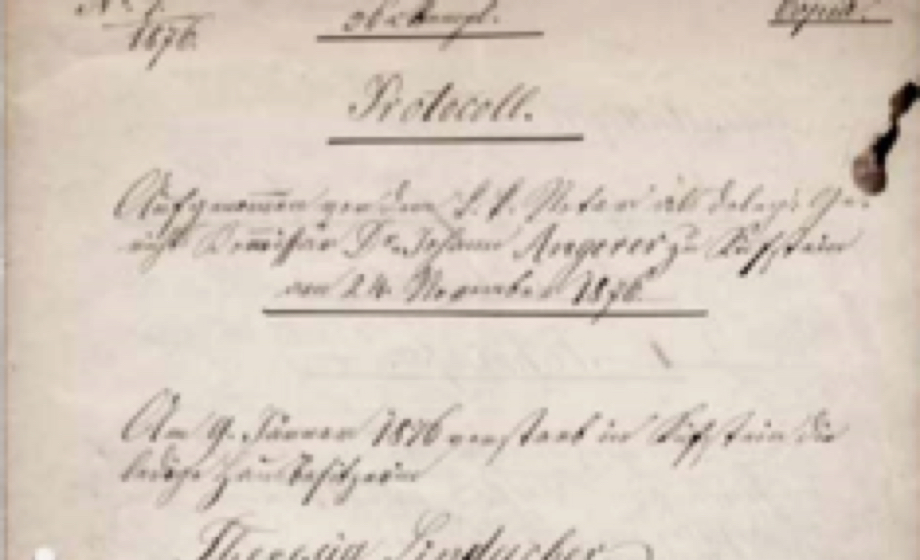 1876.
Protocoll.
Aufgenommen von dem k. k. Notar als deleg. Ge-
richts Kommissär Dr. Johann Angerer zu Kufstein
am 24. November 1876.
Am 9. Jänner 1876 verstarb in Kufstein die
ledige Hausbesitzerin
Theresia Lindacher